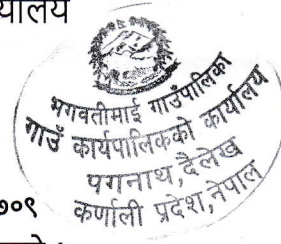 यालय
भगवतीमाई गाउँपालिका
गाउँ कार्यपालिकको कार्यालय
पगनाथ,दैलेख
७०९
कर्णाली प्रदेश,नेपाल